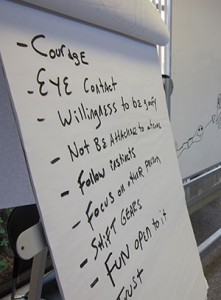 - Courage
- EYE Contact
- Willingness to be goofy
- Not Be Attached to outcome
- Follow instincts
- Focus on other person
- SHIFT GEARS
- FUN open to it
Trust